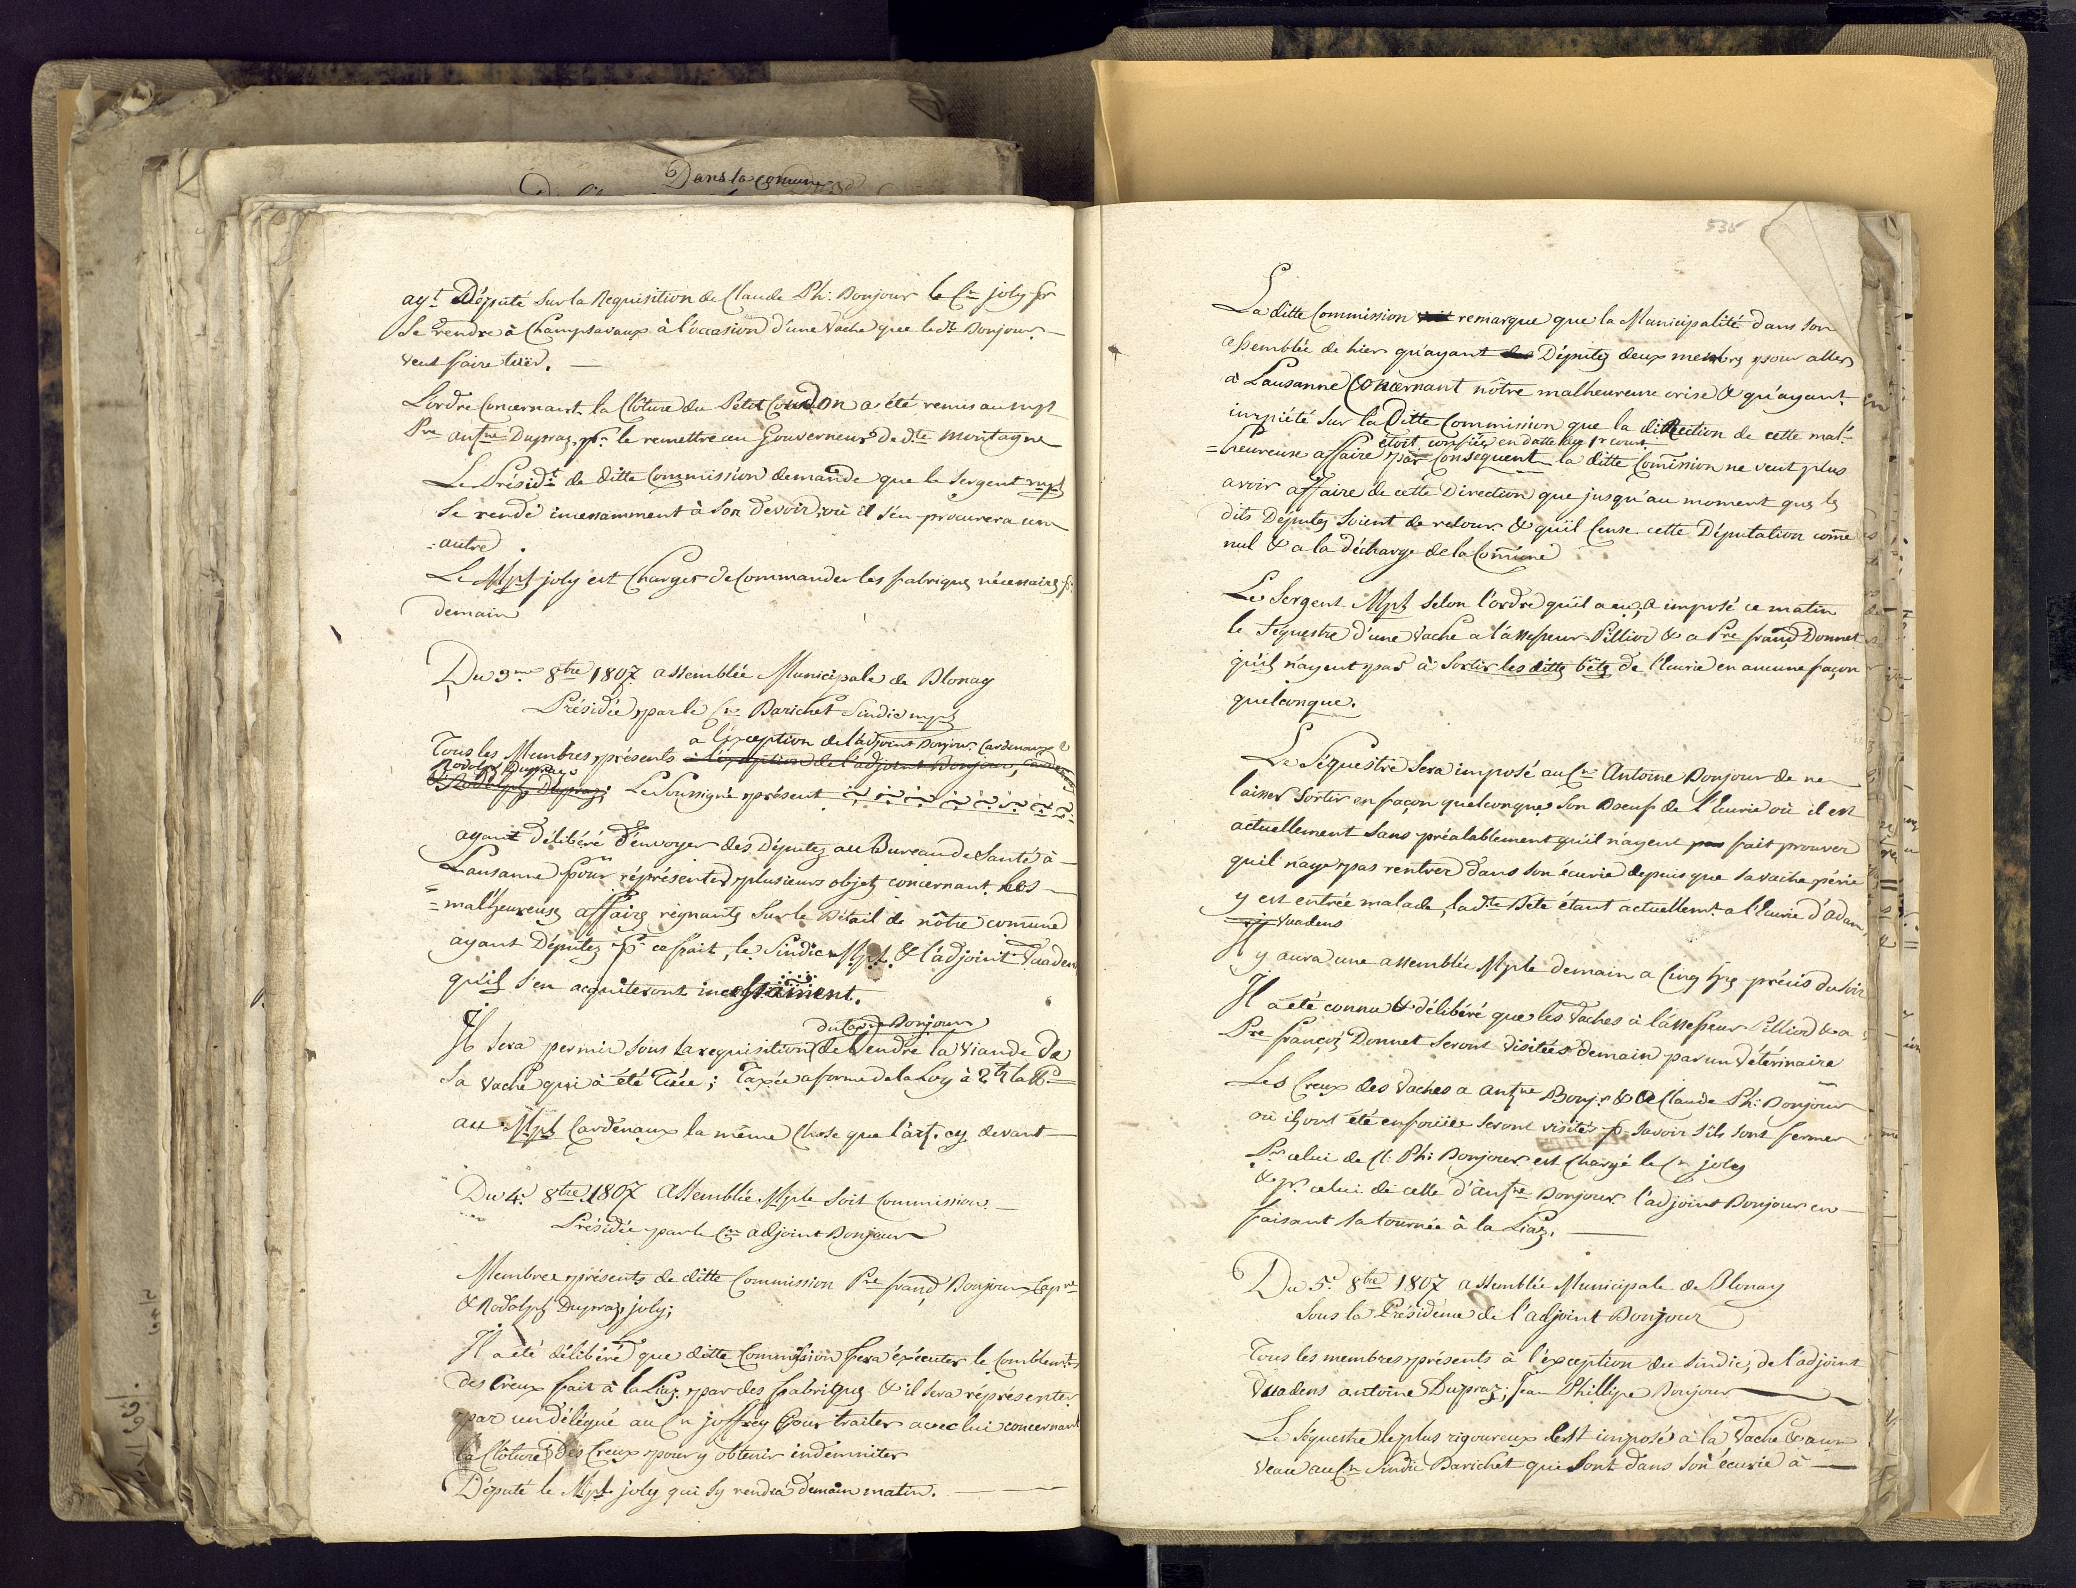 Dans la comune
ayt Député sur la Requisition de Claude Ph: Bonjour le Cn joly pr
se rendre à Champsavaux à l'occasion d'une Vache que le dt Bonjour
veut faire tuër.
L'ordre Concernant la Clôture du Petit Coudon a été remis au mpl
Pre antne Dupraz, pr le remettre au Gouverneur de dte montagne
Le Présidt de ditte Commission demande que le Sergent mpl
se rende incessamment à son devoir, où il s'en procurera un
=autre.
Le Mpl joly est Charger de Commander les fabriques nécessaires pr
demain
Du 3me 8bre 1807 assemblée Municipale de Blonay
Présidée par le Cn Barichet Sindic mpl
à l'exception de l'adjoint Bonjour Cardenaux &
Tous les Membres présents à l'exception de l'adjoint Bonjour, Cardenaux
Rodolph Dupraz
& Rodolph Dupraz; Le Soussigné présent
ayant délibéré d'envoyer des Députez au Bureau de Santé à
Lausanne pour réprésenter plusieurs objets concernant les
=malheureuses affaires régnants sur le Bétail de nôtre comune
ayant Députez pr ce fait, le Sindic Mpl. & l'adjoint Vuadens
qu'ils s'en acquiteront incessament.
du Capne Bonjour
Il sera permis sous la requisition de Vendre la Viande de
sa Vache qui à été Tuée; Taxée a forme de la Loy à 2 la
au Mpl Cardenaux la même Chose que l'art. cy devant
Du 4e 8bre 1807 Assemblée Mple soit Commission
Présidée par le Cn adjoint Bonjour
Membres présents de ditte Commission Pre franç Bonjour Capne
& Rodolph Dupraz, joly;
Il a été délibéré que ditte Commission fera éxécuter le Comblemts
des Creux fait à la Liaz par des fabriques & il sera réprésenter
par un délégué au Cn joffrey Pour traiter avec lui concernant
la Clôture des Creux pour y obtenir indemniter
Député le Mpl joly qui s'y rendra demain matin.
535
La ditte Commission remarque que la Municipalité dans son
assemblée de hier qu'ayant des Députez deux membres pour aller
à Lausanne Concernant nôtre malheureuse crise & qu'ayant
impiété sur la Ditte Commission que la direction de cette mal=
étoit confiée en datte du 1r court
=heureuse affaire par Conséquent la ditte Comission ne veut plus
avoir affaire de cette Direction que jusqu'au moment que les
dits Députez soient de retour & qu'il Cense cette Députation come
nul & a la décharge de la Comune
Le Sergent Mpl selon l'ordre qu'il a eu, a imposé ce matin
le Séquestre d'une Vache a l'assesseur Pilliod & a Pre franç Donnet
qu'ils n'ayent pas à sortir les dittes bêtes de l'Ecurie en aucune façon
quelconque.
Le Séquestre sera imposé au Cn Antoine Bonjour de ne
laisser sortir en façon quelconque son Boeuf de l'Ecurie où il est
actuellement sans préalablement qu'il n'ayent pas fait prouver
quil n'aye pas rentrer dans son écurie depuis que sa vache périe
y est entrée malade, la dte Bête étant actuellemt a l'Ecurie d'adam
Vuadens
Il y aura une assemblée Mple demain a Cinq hres précis du soir
Il a été connu & délibéré que les Vaches à l'assesseur Pilliod & a
Pre françois Donnet seront visitées demain par un Vétérinaire
Les Creux des Vaches a antne Bonjr & de Claude Ph: Bonjour
où ils ont été enfouïes seront visités pr savoir s'ils sont fermer
Pr celui de Cl: Ph: Bonjour est Chargé le Cn joly
& pr celui de celle d'antne Bonjour l'adjoint Bonjour en
faisant sa tournée à la Liaz.
Du 5e 8bre 1807 assemblée Municipale de Blonay
sous la Présidence de l'adjoint Bonjour
Tous les membres présents à l'exception du Sindic, de l'adjoint
Vuadens antoine Dupraz; Jean Phillipe Bonjour
Le Séquestre le plus rigoureux est imposé à la Vache & au
Veau au Cn Sindic Barichet qui sont dans son écurie à